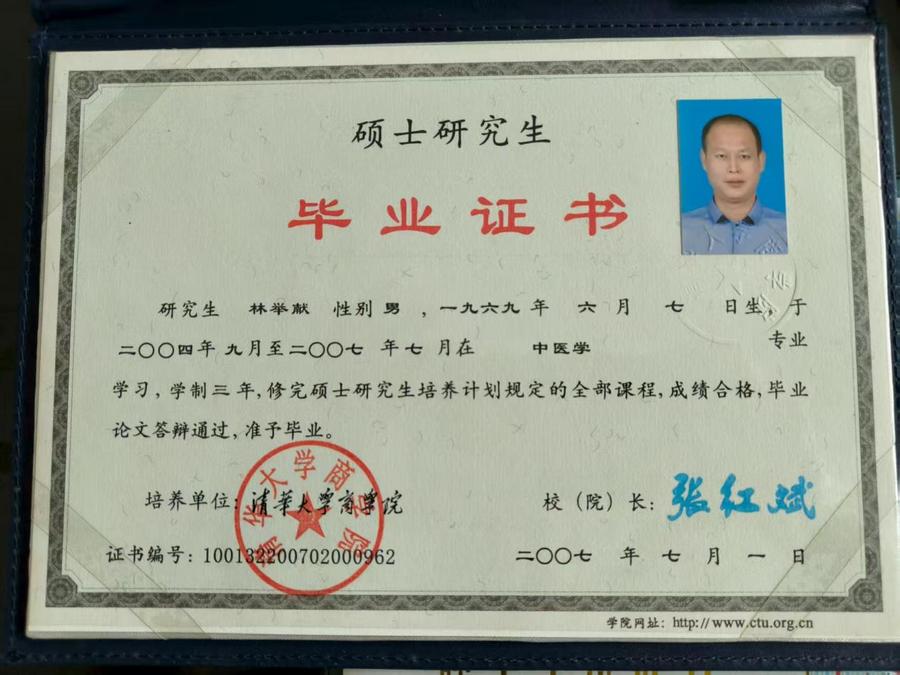 硕士研究生
毕业证书
研究生 林举献 性别 男 ,一九六九 年 六 月 七 日生,于
二〇〇四年 九月至二〇〇七 年七 月在 中医学 专业
学习,学制三 年,修完硕士研究生培养计划规定的全部课程,成绩合格,毕业
论文答辩通过,准予毕业。
清华大学商学院
培养单位:清華大学商学院 校(院)长:张红斌
证书编号:100132200702000962 二〇〇七 年 七 月 一 日
学院网址:http://www.ctu.org.cn